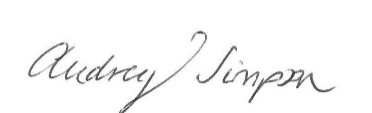 Audrey Simpson